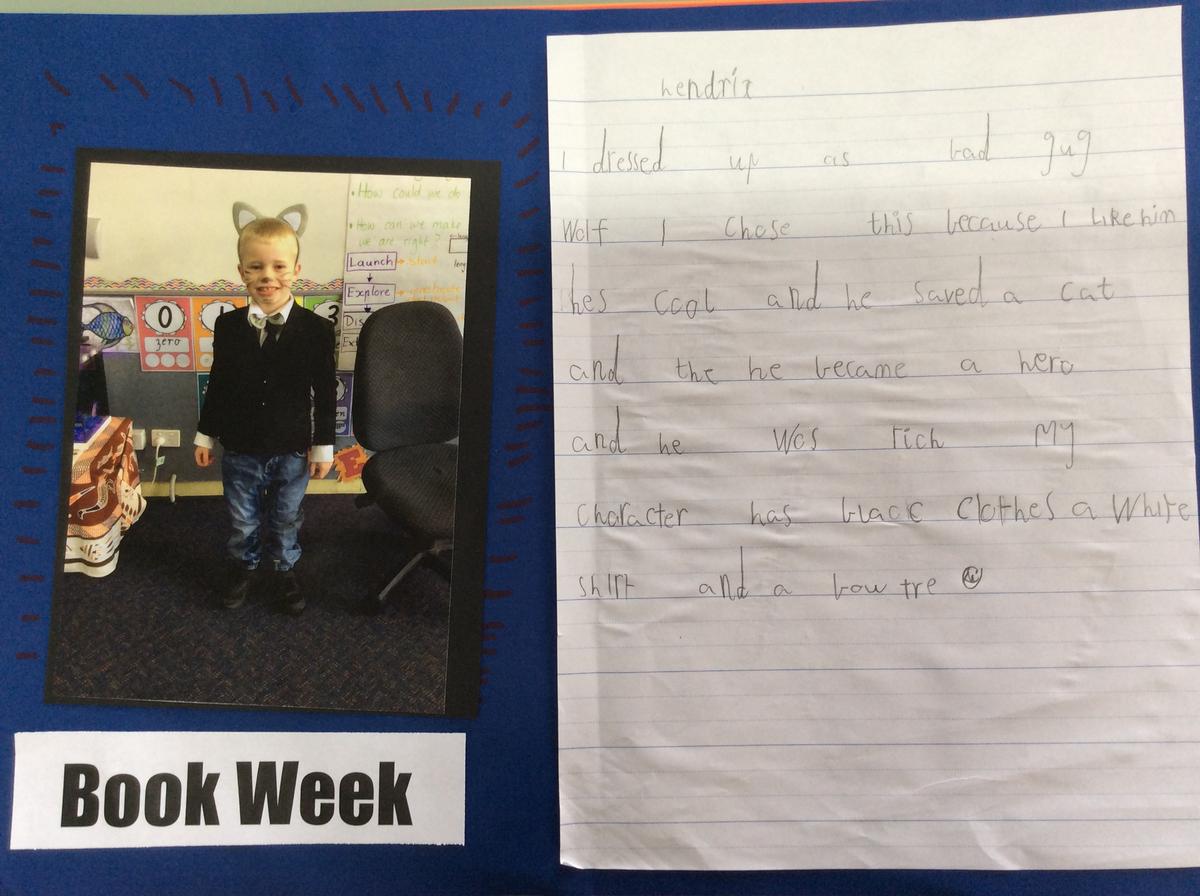 • How could we do
• How can we make
we are right?
Launch → start
Explore →
Dis
Ex
0
zero
1
3
Book Week
hendrix
I dressed up as bad gug
Wolf I Chose this because I Like him
hes cool and he saved a cat
and the he became a hero
and he Was rich My
Character has black Clothes a White
shirt and a bow tre